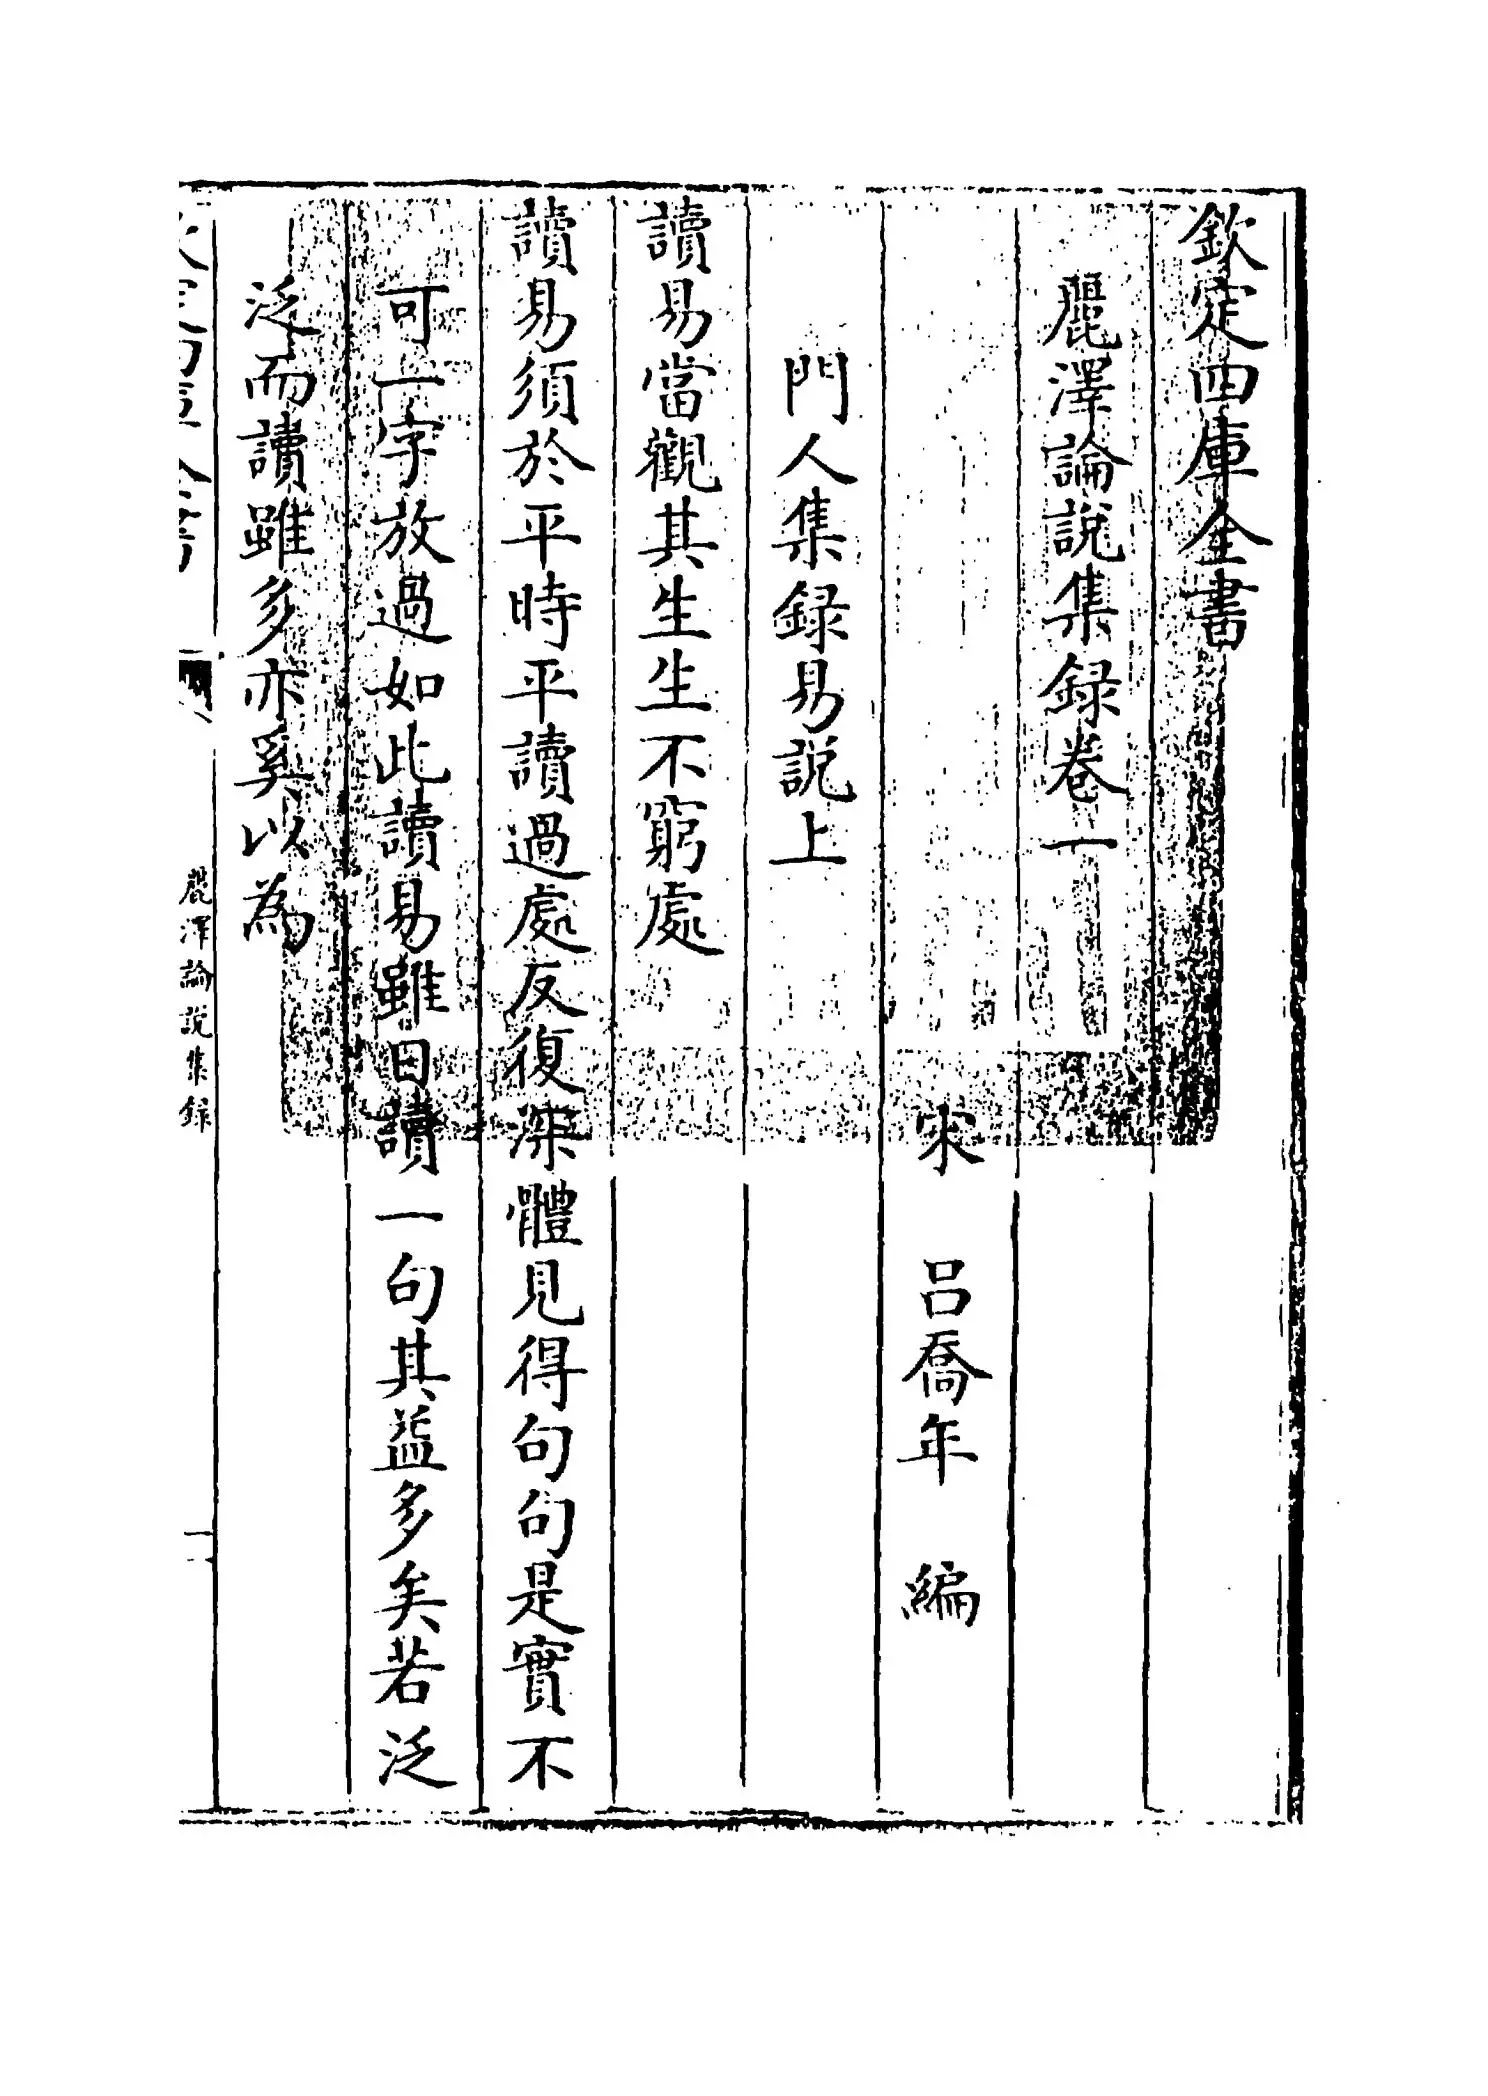 欽定四庫全書
麗澤論說集録卷一
宋 呂喬年 編
門人集録易説上
讀易當觀其生生不窮處
讀易須於平時平讀過處反復深體見得句句是實不
可一字放過如此讀易雖日讀一句其益多矣若泛
泛而讀雖多亦奚以為
麗澤論說集録
一